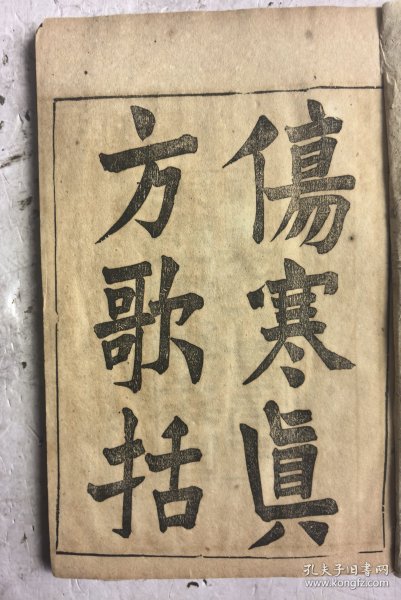 傷寒眞
方歌括
孔夫子旧书网
www.kongfz.com